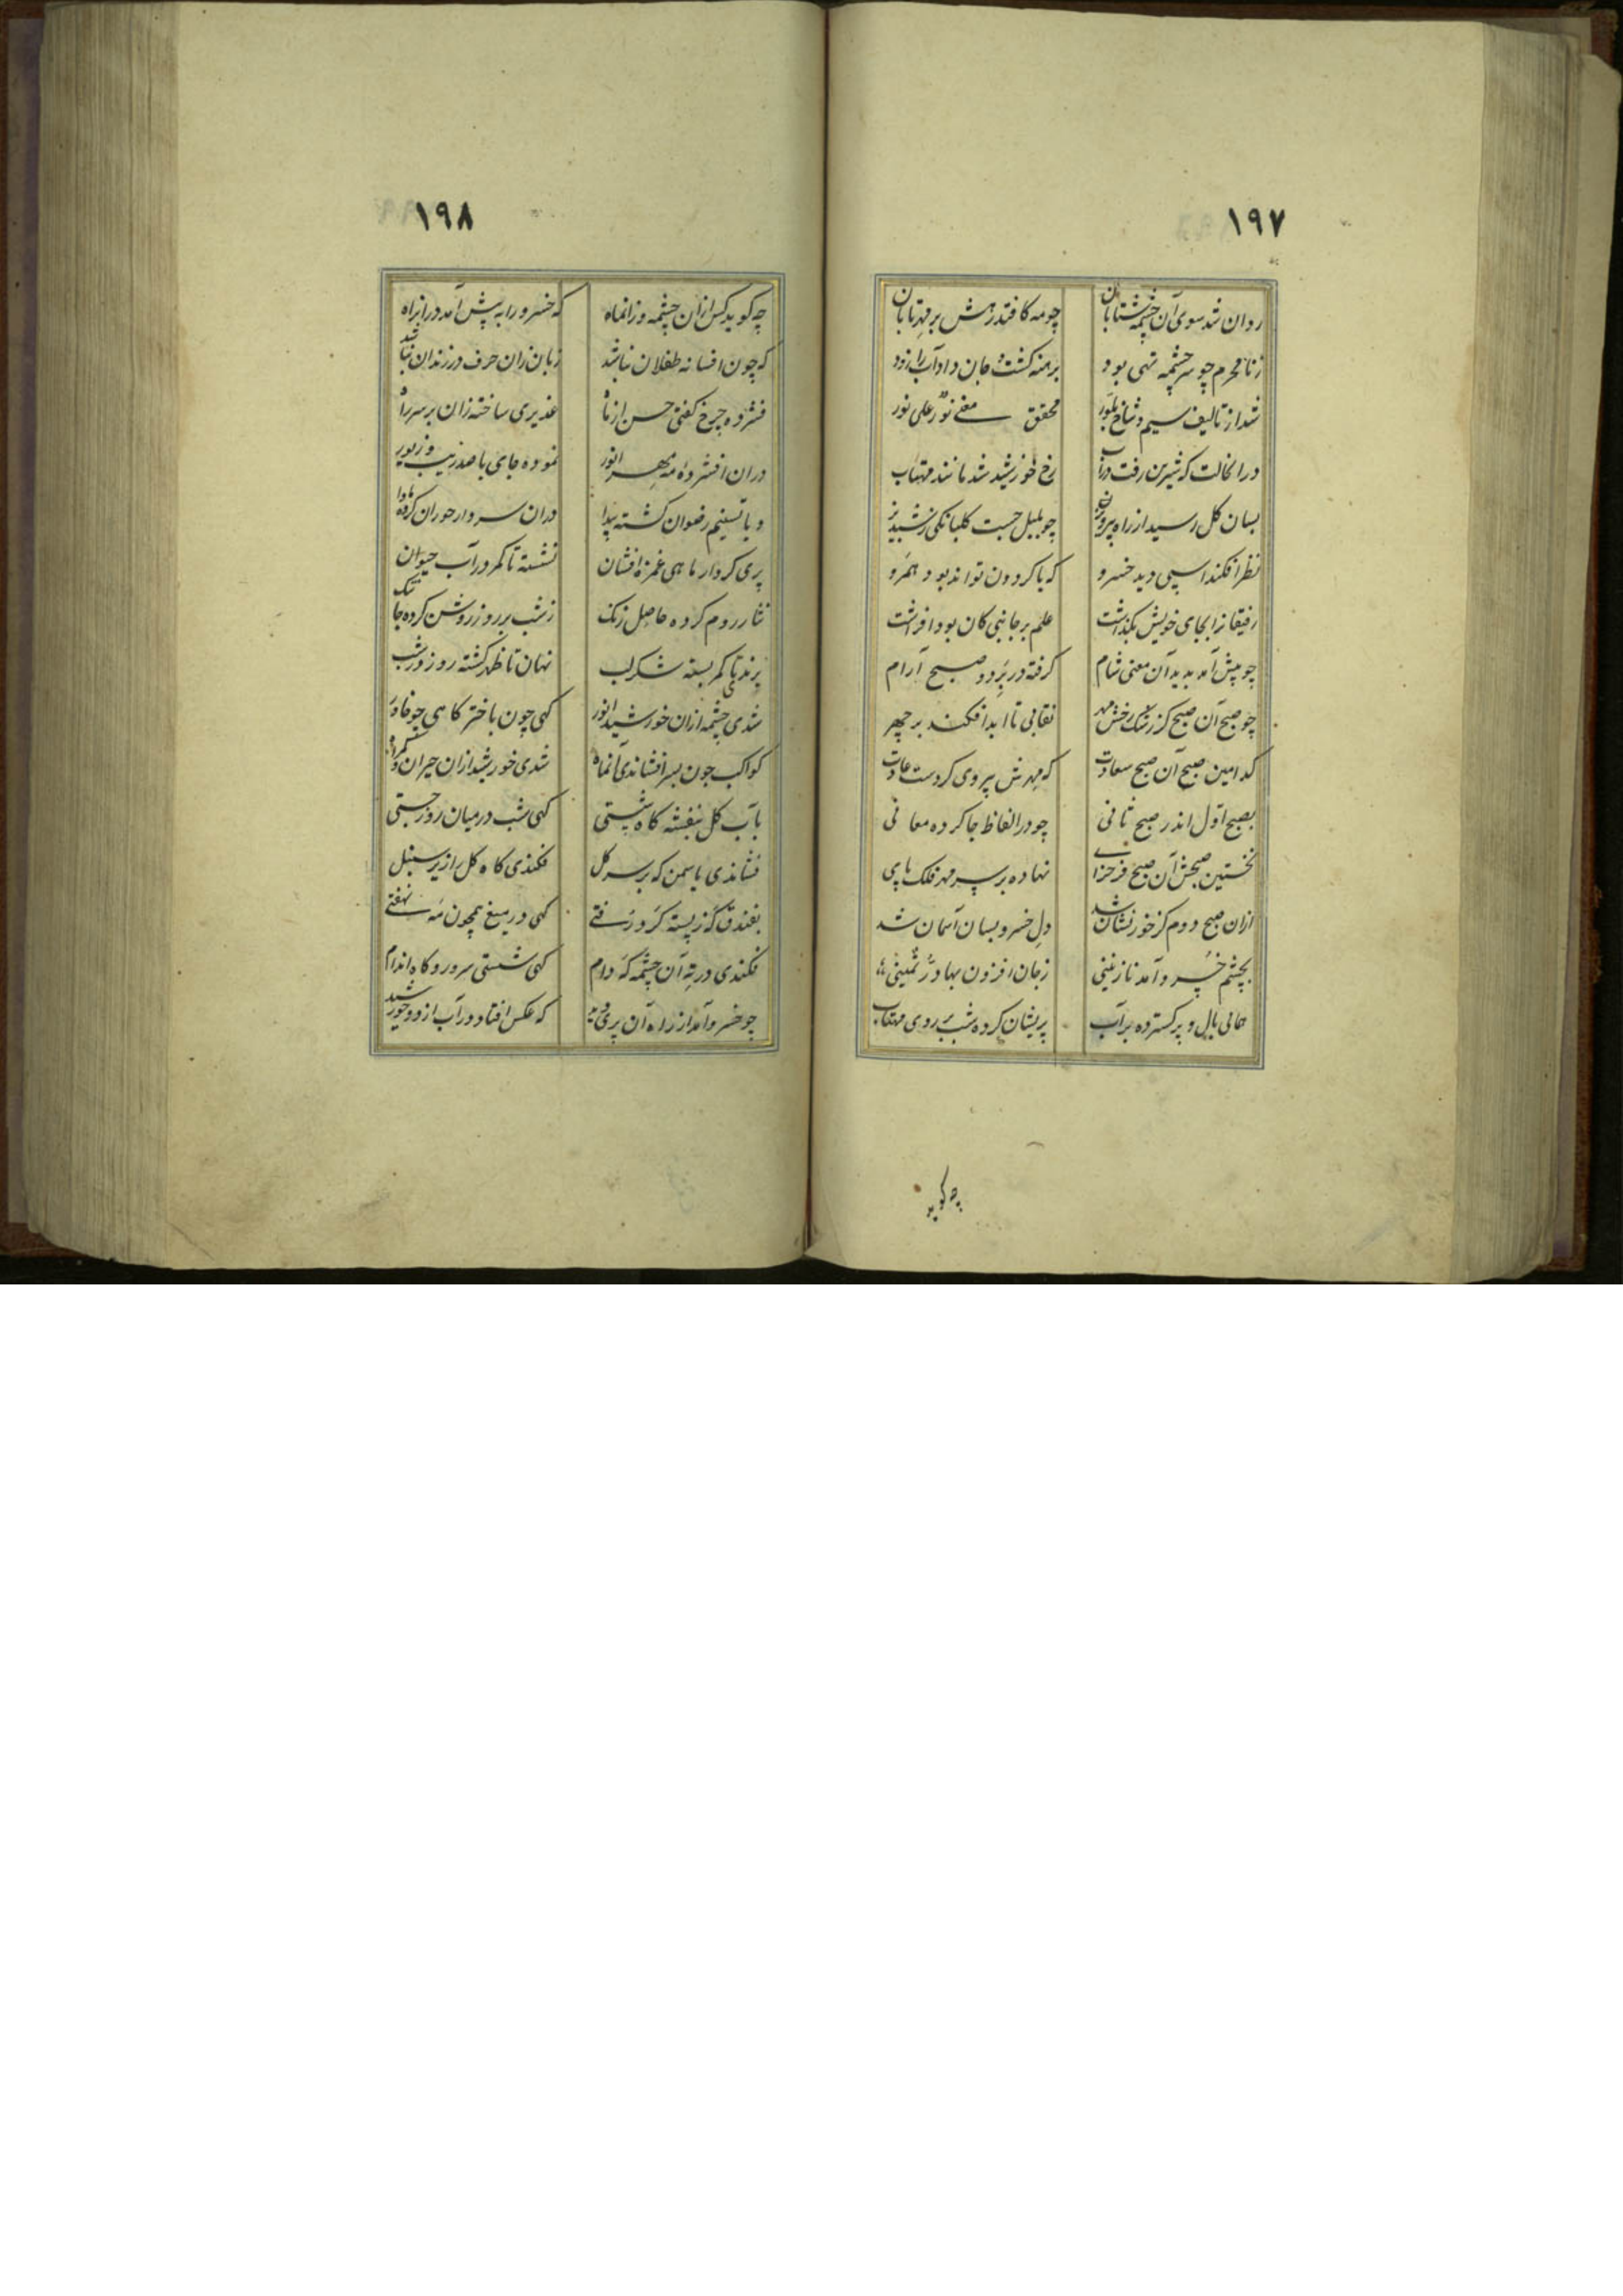 ۱۹۷
روان شد سوی آن چشمه شتابان چو مه کافتد زهش بر مهر تابان
ز نامحرم چو سرچشمه تهی بود برهنه کشت و جان داد آب را زود
شد از تالیف سیم و شاخ بلور محقق معنے نور علی نور
در انحالت که شیرین رفت در آب رخ خورشید شد مانند مهتاب
بسان کل رسید از راه پرویز چو بلبل جست کلبانکی ز شبدیز
نظر افکند اسپی دید خسرو که با کردون تواند بود همرو
رفیقانرا بجای خویش بکذاشت علم بر جانبی کان بود افراشت
چو پیش آمد بدید آن معنی شام کرفته در بر دو صبح آرام
چو صبح آن صبح کز رشک رخش مهر نقابی تا ابد افکند بر چهر
کدامین صبح آن صبح سعادت که مهرش پیروی کردست عادت
بصبح اول اندر صبح ثانی چو در الفاظ جا کرده معانی
نخستین صبحش آن صبح فرحزای نهاده بر سر مهر فلک پای
ازان صبح دوم کز خور نشان شد دل خسرو بسان آسمان شد
بچشم خسرو آمد نازنینی ز جان افزون بها در ثمینی
همائی بال و پر کسترده بر آب پریشان کرده شب بر روی مهتاب
چه کوید
۱۹۸
چه کوید کس ازان چشمه وزانماه که خسرو را به پیش آمد دران راه
که چون افسانه طفلان نباشد زبان زان حرف در زندان نباشد
فشرده چرخ کفتی حسن از ماه غدیری ساخته زان بر سر راه
دران افشرده مه مهر انور نموده جای با صد زیب و زیور
و یا تسنیم رضوان کشته پیدا دران سر دار حوران کرده ماوا
پری کردار ماهی غمزه افشان نشسته تا کمر در آب حیوان
نثار روم کرده حاصل زنک ز شب بر روز روشن کرده جا تنک
پرندی تا کمر بسته شکر لب نهان تا ظهر کشته روز در شب
شدی چشمه ازان خورشید انور کهی چون باختر کاهی چو خاور
کواکب چون بسر افشاندی آنماه شدی خورشید ازان حیران و کمراه
بآب کل بنفشه کاه شستی کهی شب در میان روز جستی
فشاندی یاسمن که بر سر کل فکندی کاه کل از یر سنبل
بفندق که ز پسته کرد رفتے کهی در میغ همچون مه نهفتے
فکندی در ته آن چشمه که دام کهی شستی سر و رو کاه اندام
چو خسرو آمد از راه آن پری دید که عکس افتاد در آب از دو خورشید